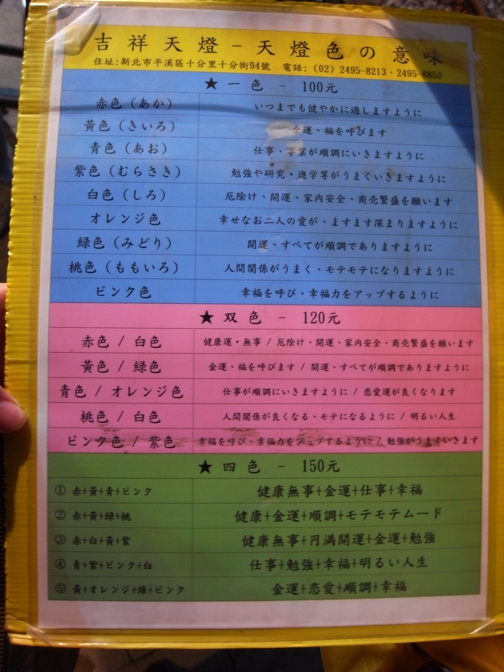 吉祥天燈-天燈色の意味
住址:新北市平溪區十分里十分街94號 電話:(02) 2495-8213·2495-8850
★ 一色 - 100元
赤色(あか) いつまでも健やかに過しますように
黃色(きいろ) 金運、福を呼びます
青色(あお) 仕事、事業が順調にいきますように
紫色(むらさき) 勉強や研究・進学等がうまくいきますように
白色(しろ) 厄除け、開運、家內安全、商売繁盛を願います
オレンジ色 幸せなお二人の愛が、ますます深まりますように
綠色(みどり) 開運、すべてが順調でありますように
桃色(ももいろ) 人間関係がうまく、モテモテになりますように
ピンク色 幸福を呼び、幸福力をアップするように
★ 双色 - 120元
赤色 / 白色 健康運・無事 / 厄除け、開運、家內安全、商売繁盛を願います
黃色 / 綠色 金運、福を呼びます / 開運、すべてが順調でありますように
青色 / オレンジ色 仕事が順調にいきますように / 恋愛運が良くなります
桃色 / 白色 人間関係が良くなる、モテになるように / 明るい人生
ピンク色 / 紫色 幸福を呼び、幸福力をアップするように / 勉強がうまくいきます
★ 四色 - 150元
① 赤+黃+青+ピンク 健康無事+金運+仕事+幸福
② 赤+黃+綠+桃 健康+金運+順調+モテモテムード
③ 赤+白+黃+紫 健康無事+円満開運+金運+勉強
④ 青+紫+ピンク+白 仕事+勉強+幸福+明るい人生
⑤ 黃+オレンジ+綠+ピンク 金運+恋愛+順調+幸福